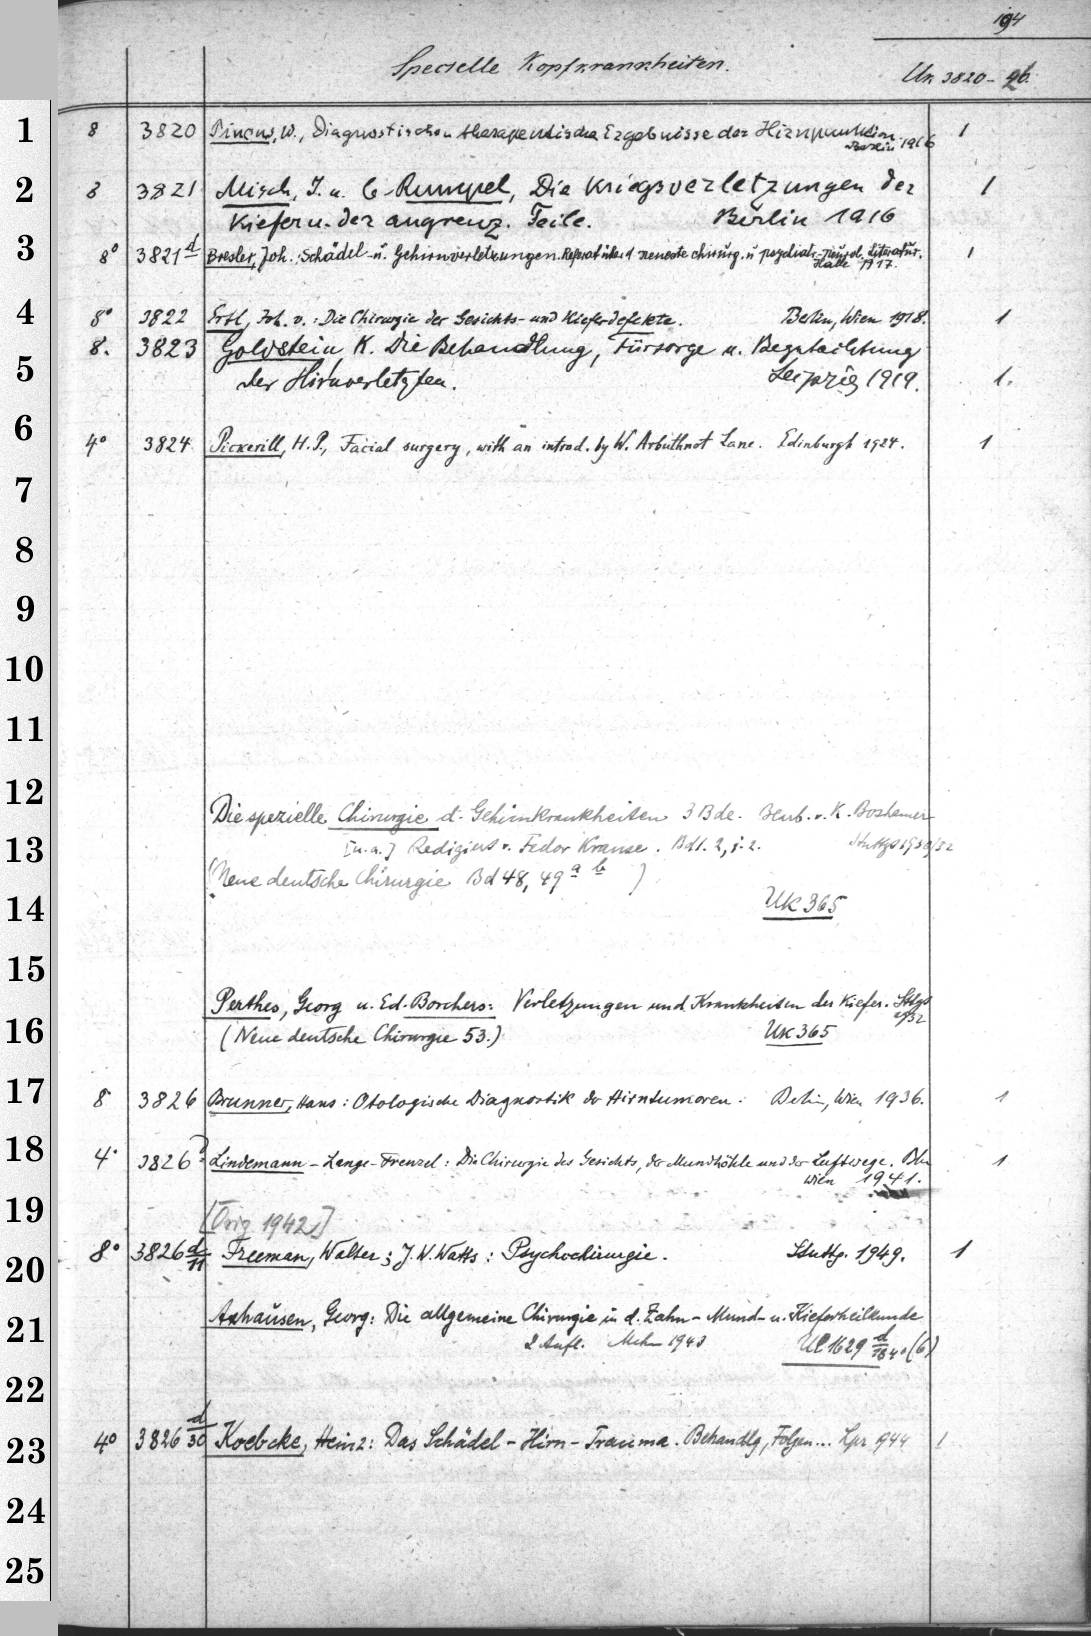 194
Specielle Kopfkrankheiten.
Uk 3820-26.
1 8 3820 Pincus, W., Diagnostischen therapeutische Ergebnisse der Hirnpunktion. Berlin 1916 1
2 8 3821 Misch, J. u. C Rumpel, Die Kriegsverletzungen der 1
Kiefer u. der angrenz. Teile. Berlin 1916
3 8° 3821 d Bresler, Joh.: Schädel- u. Gehirnverletzungen. Referat über d neueste chirurg. u psychiatr.-neurol. Literatur. 1
Halle 1917.
4 8° 3822 Ertl, Joh. v.: Die Chirurgie der Gesichts- und Kieferdefekte. Berlin, Wien 1918. 1
8. 3823 Goldstein, K. Die Behandlung, Fürsorge u. Begutachtung
5 der Hirnverletzten. Leipzig 1919. 1.
6 4° 3824 Pickerill, H.P., Facial surgery, with an introd. by W. Arbuthnot Lane. Edinburgh 1924. 1
7
8
9
10
11
12 Die spezielle Chirurgie d. Gehirnkrankheiten 3 Bde. Bearb. v. K. Boshamer
13 [u.a.] Redigiert v. Fedor Krause. Bd 1. 2, 1. 2. Stuttgt 1930/32
(Neue deutsche Chirurgie Bd 48, 49 a b )
14 Uk 365
15
Perthes, Georg u. Ed. Borchers: Verletzungen und Krankheiten der Kiefer. Sttgt
1932
16 (Neue deutsche Chirurgie 53.) Uk 365
17 8 3826 Brunner, Hans: Otologische Diagnostik der Hirntumoren. Berlin, Wien 1936. 1
18 4° 3826 Lindemann - Lange - Frenzel: Die Chirurgie des Gesichts, der Mundhöhle und der Luftwege. Bln 1
Wien 1941.
19 [Orig 1942]
20 8° 3826 d/11 Freeman, Walter; J. W. Watts: Psychochirurgie. Stuttg. 1949. 1
21 Axhausen, Georg: Die allgemeine Chirurgie in d. Zahn- Mund- u. Kieferheilkunde
2 Aufl. Mchn 1943 Ul 1629 d/18 4° (6)
22
23 4° 3826 d/30 Koebcke, Heinz: Das Schädel-Hirn-Trauma. Behandlg, Folgen... Lpz 1944 1
24
25